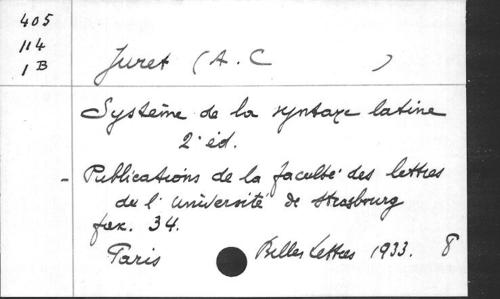 405
114
1 B
Juret (A. C )
Système de la syntaxe latine
2e éd.
- Publications de la faculté des lettres
de l'université de Strasbourg
fax. 34.
Paris Belles Lettres 1933. 8